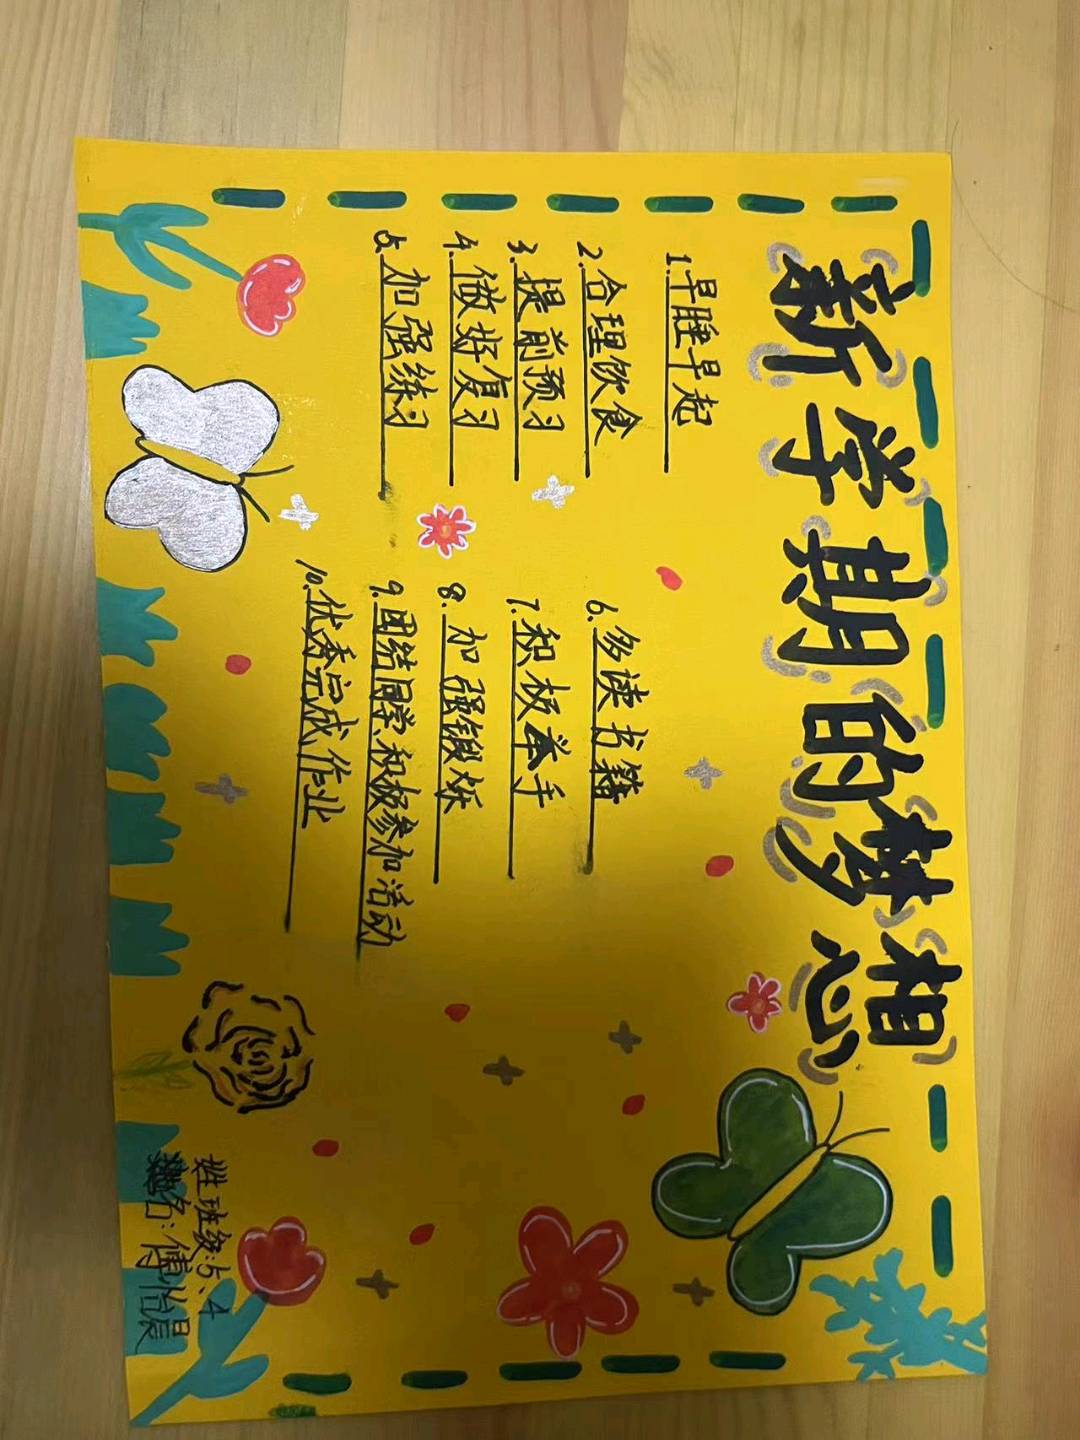 新学期的梦想
1.早睡早起
2.合理饮食
3.提前预习
4.做好复习
5.加强练习
6.多读书籍
7.积极举手
8.加强锻炼
9.团结同学积极参加活动
10.优秀完成作业
班级:5、4
姓名:傅怡晨